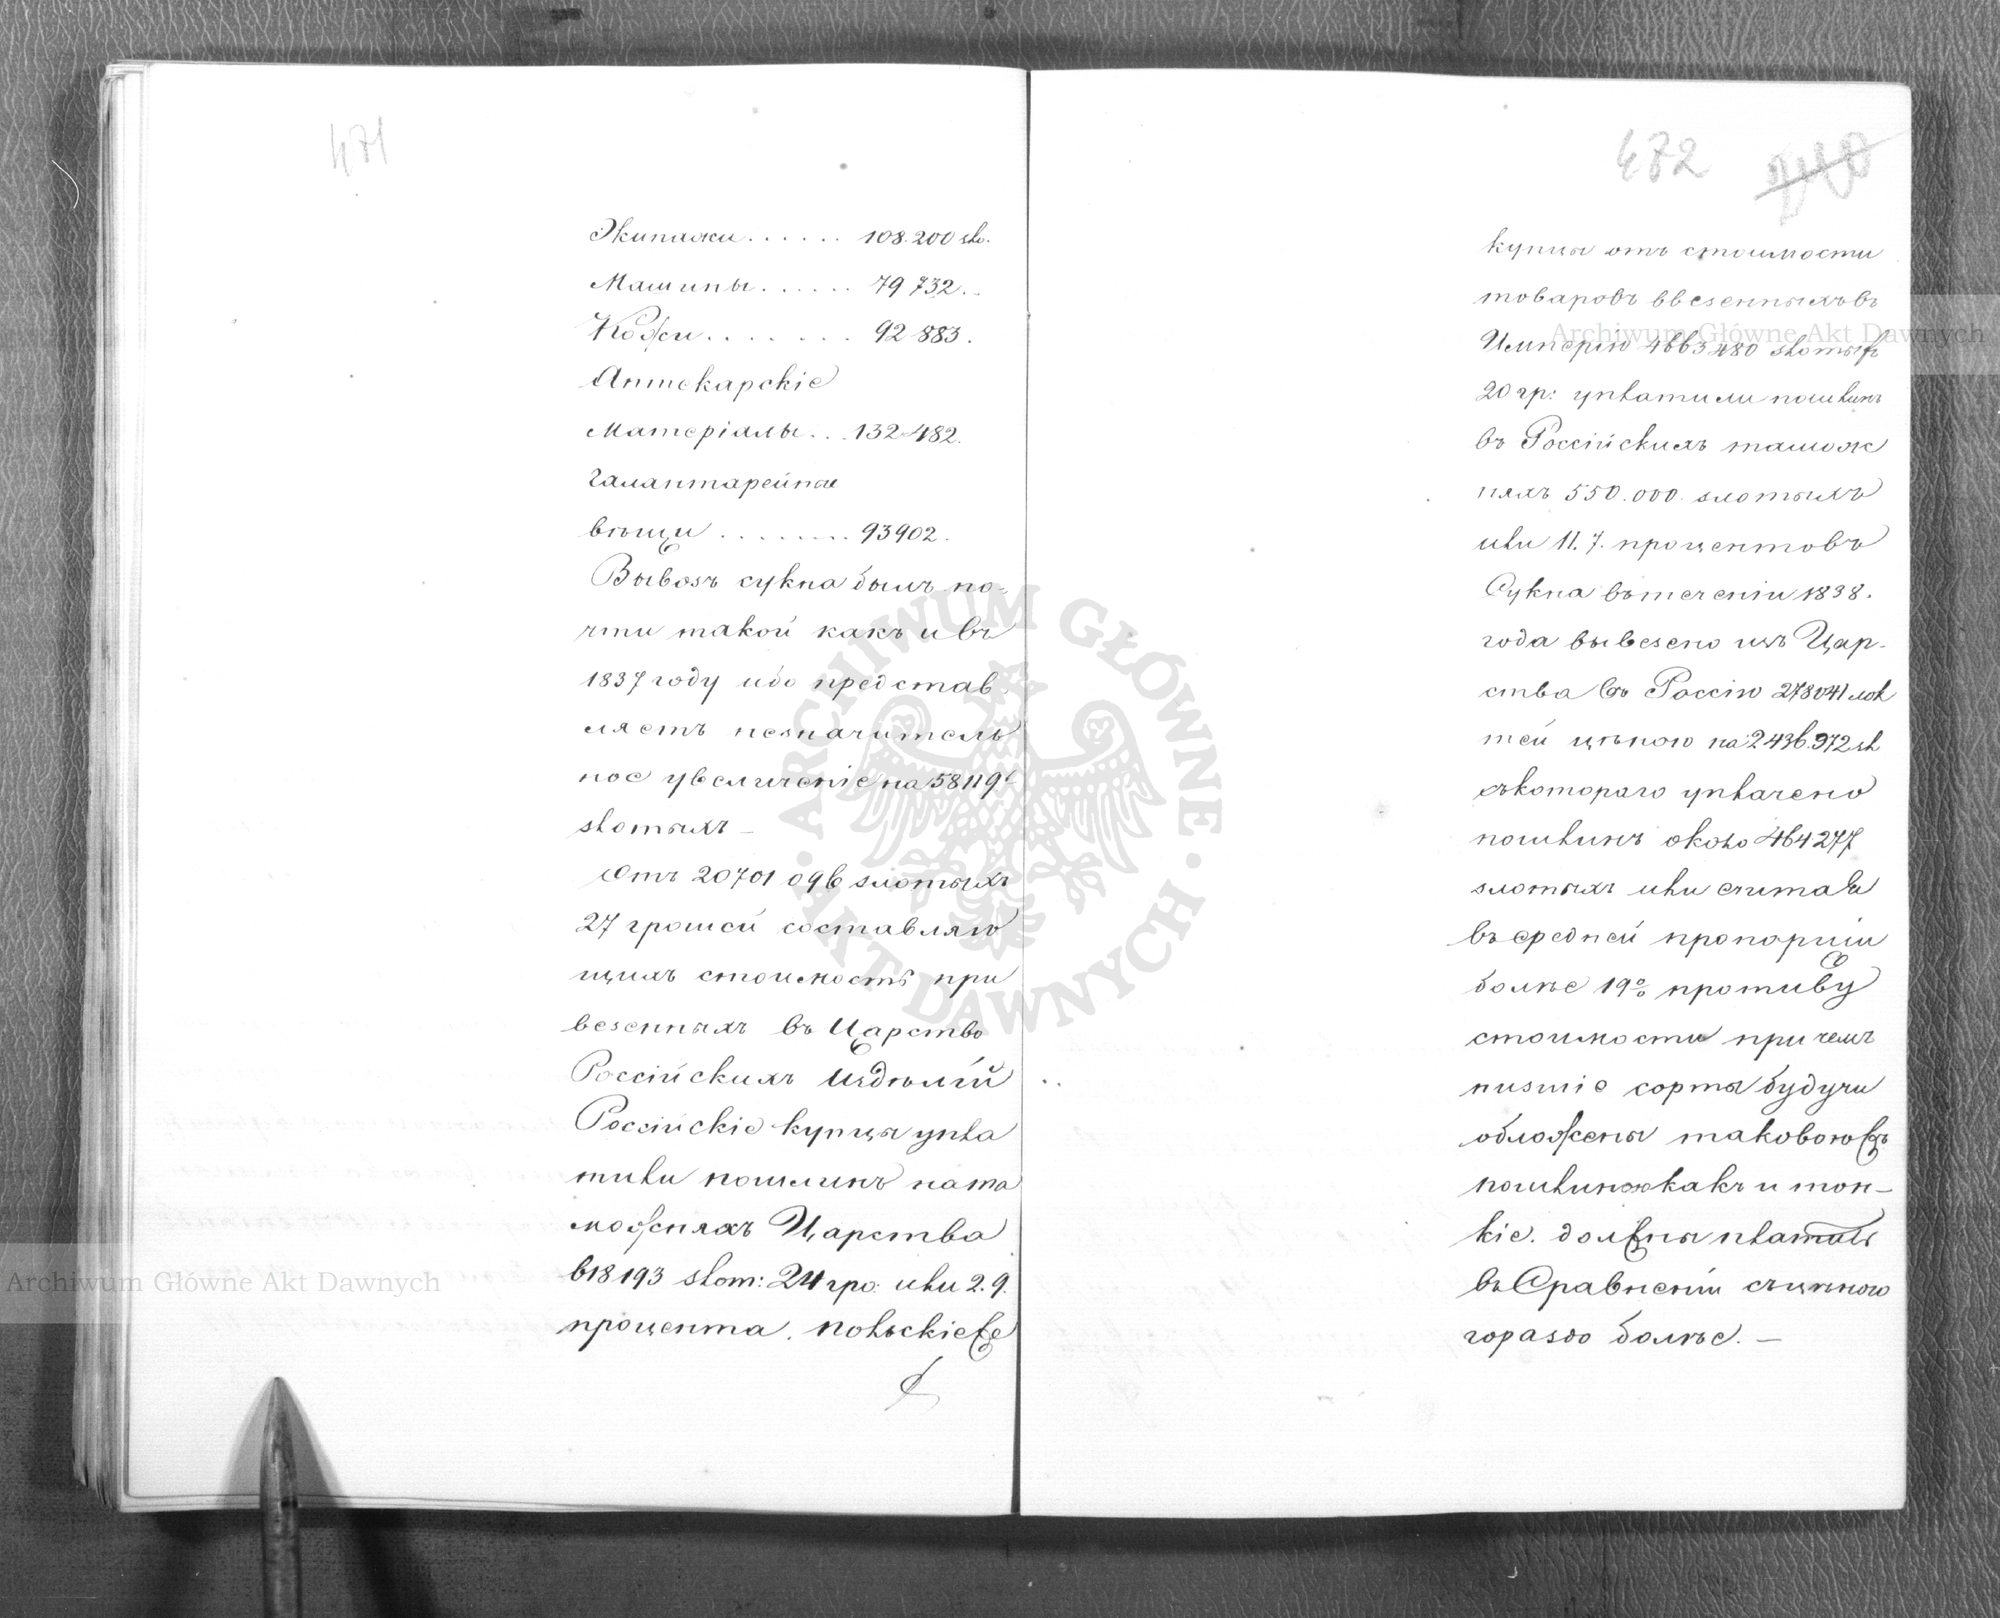 471
Экипажи . . . . . . 108.200 зло.
Машины . . . . . . 79 732. „
Кожи . . . . . . . 92 883.
Аптекарскіе
матеріалы . . . 132 482.
Галантарейные
вѣщи . . . . . . . . 93902.
Вывозъ сукна былъ по-
чти такой какъ и въ
1837 году ибо представ
ляетъ незначитель
ное увеличеніе на 58119
злотыхъ —
Отъ 20701 096 злотыхъ
27 грошей составляю
щихъ стоимость при
везенныхъ въ Царство
Россійскихъ издѣлій
Россійскіе купцы упла
тили пошлинъ на та
можняхъ Царства
618 193 злот: 24 гро: или 2.9.
процента. Польскіе же
472 240
купцы отъ стоимости
товаровъ ввезенныхъ въ
Имперію 4663 480 злотыхъ
20 гр: уплатили пошлинъ
въ Россійскихъ тамож
няхъ 550.000. злотыхъ
или 11.7. процентовъ
Сукна въ теченіи 1838.
года вывезено изъ Цар-
ства въ Россію 278041 лок
тей цѣною на 2 436.972 зл
съ котораго уплачено
пошлинъ около 464 277
злотыхъ или считая
въ средней пропорціи
болѣе 19% противу
стоимости при чемъ
низшіе сорты будучи
обложены таковою жъ
пошлиною какъ и тон-
кіе. должны платить
въ Сравненіи съ цѣною
гораздо болѣе. —
Archiwum Główne Akt Dawnych
Archiwum Główne Akt Dawnych
ARCHIWUM GŁÓWNE · AKT DAWNYCH ·